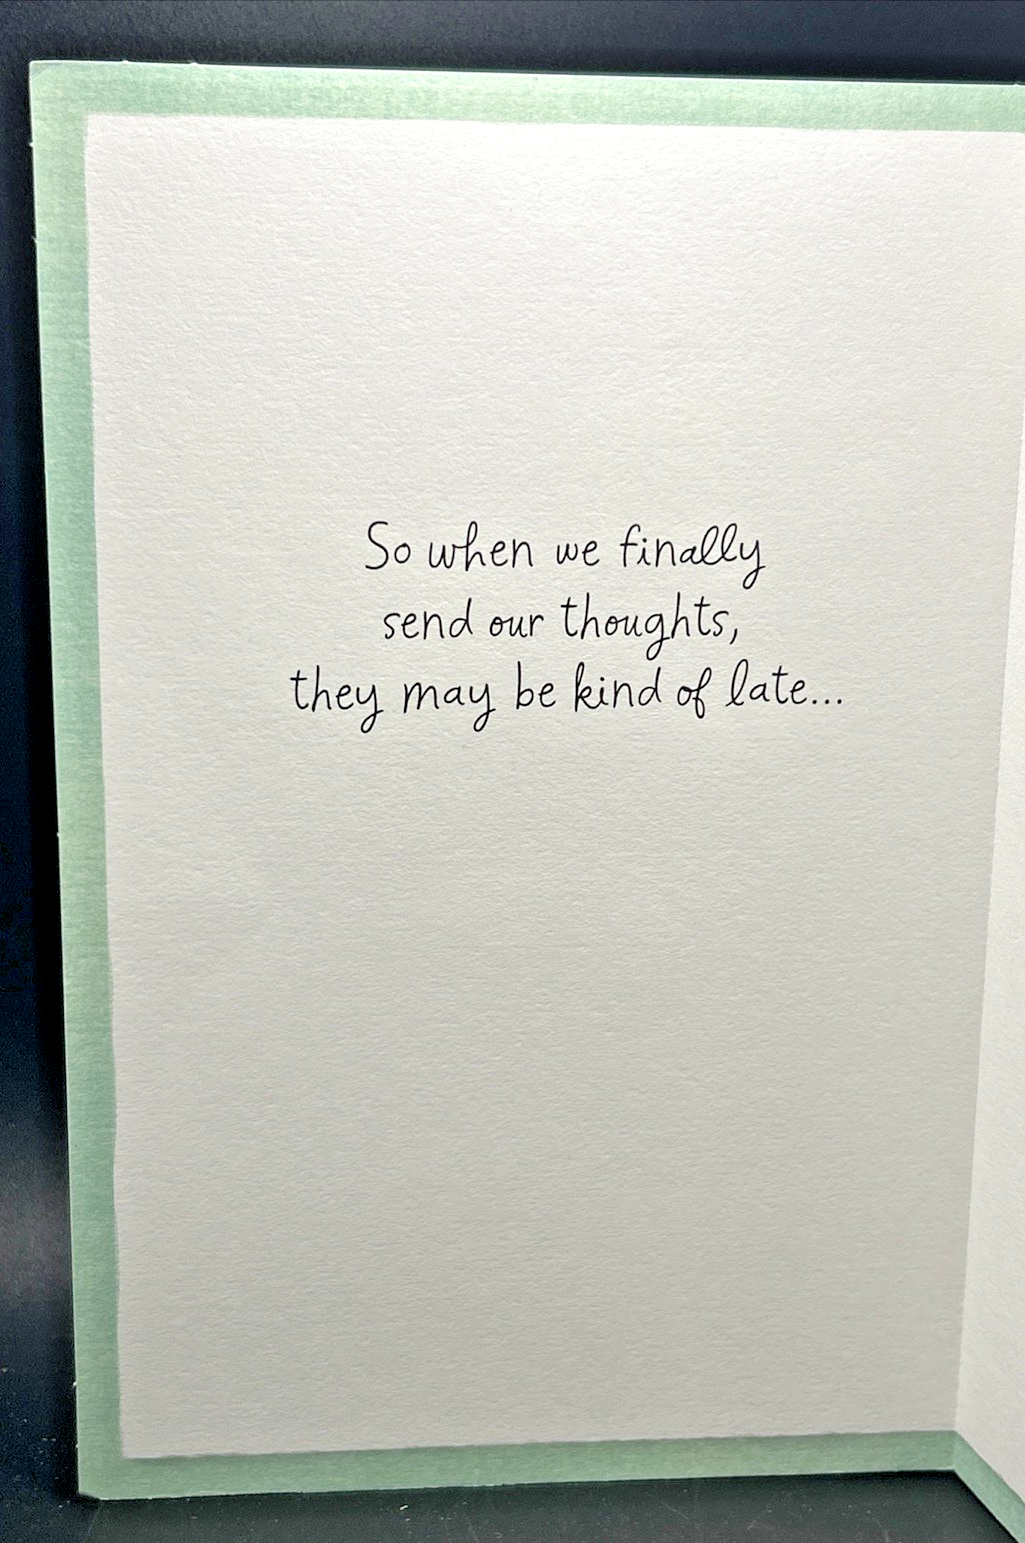 So when we finally
send our thoughts,
they may be kind of late...